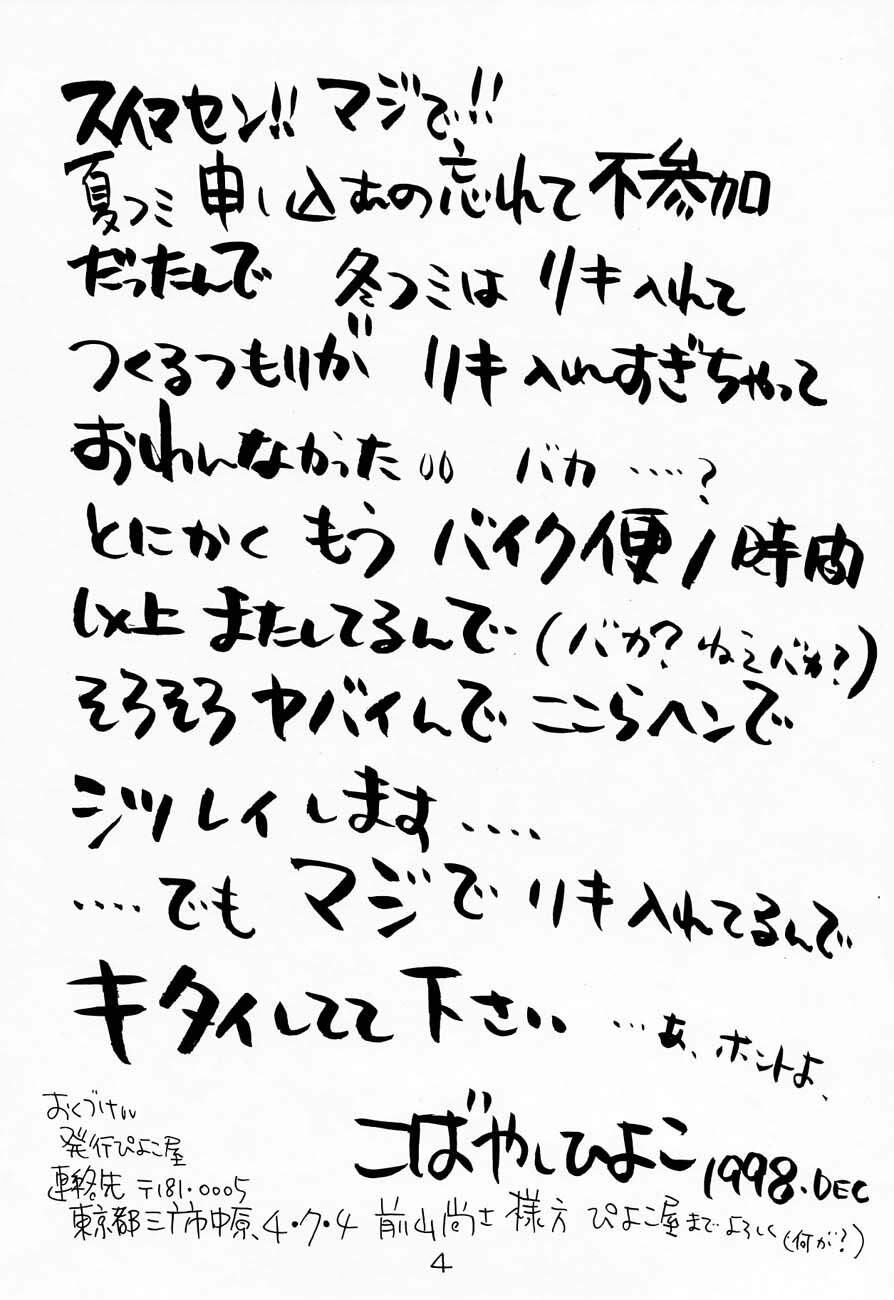 スイマセン!! マジで!!
夏コミ 申し込むの忘れて 不参加
だったんで 冬コミは リキ入れて
つくるつもりが リキ入れすぎちゃって
おわんなかった バカ ‥‥?
とにかく もう バイク便 1時間
以上 またしてるんで (バカ? ねェバカ?)
そろそろ ヤバイんで ここらヘンで
シツレイします ‥‥
‥‥でも マジで リキ入れてるんで
キタイしてて 下さい …あ、ホントよ、
こばやしひよこ 1998.DEC
おくづけ
発行ぴよこ屋
連絡先 〒181・0005
東京都三市中原、4・7・4 前山尚士 様方 ぴよこ屋まで よろしく (何が?)
4